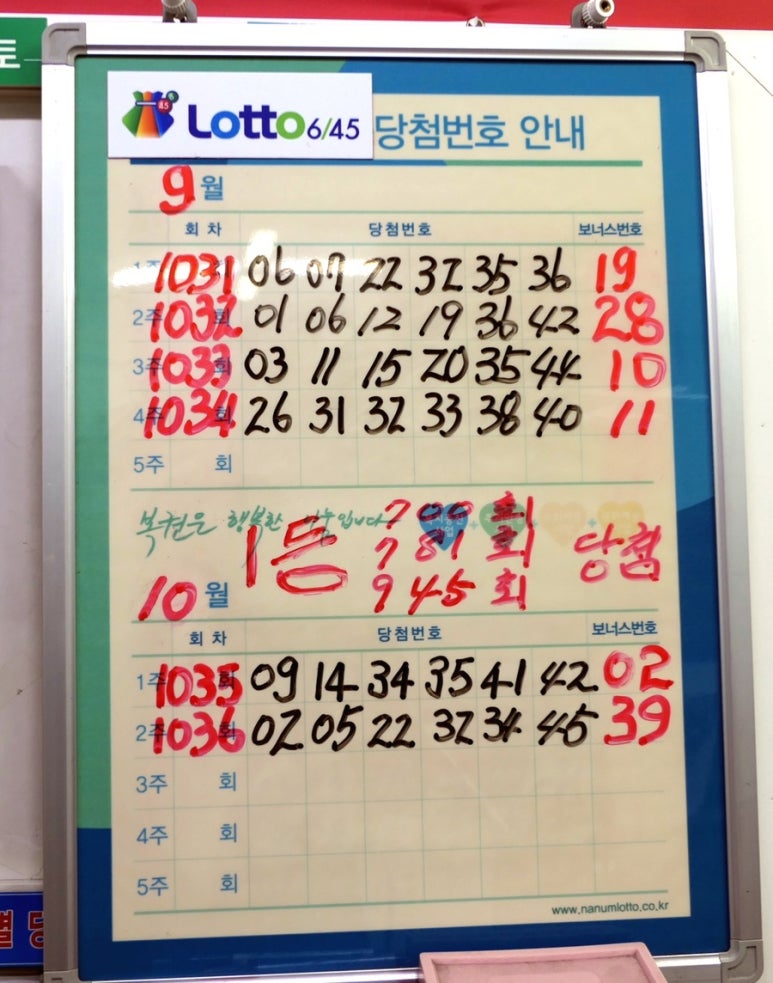 토
Lotto 6/45 당첨번호 안내
9월
회 차 당첨번호 보너스번호
1주 1031회 06 07 22 32 35 36 19
2주 1032회 01 06 12 19 36 42 28
3주 1033회 03 11 15 20 35 44 10
4주 1034회 26 31 32 33 38 40 11
5주 회
복권은 행복한 나눔입니다
1등 700회 당첨
781회
945회
10월
회 차 당첨번호 보너스번호
1주 1035회 09 14 34 35 41 42 02
2주 1036회 02 05 22 32 34 45 39
3주 회
4주 회
5주 회
www.nanumlotto.co.kr
별 당